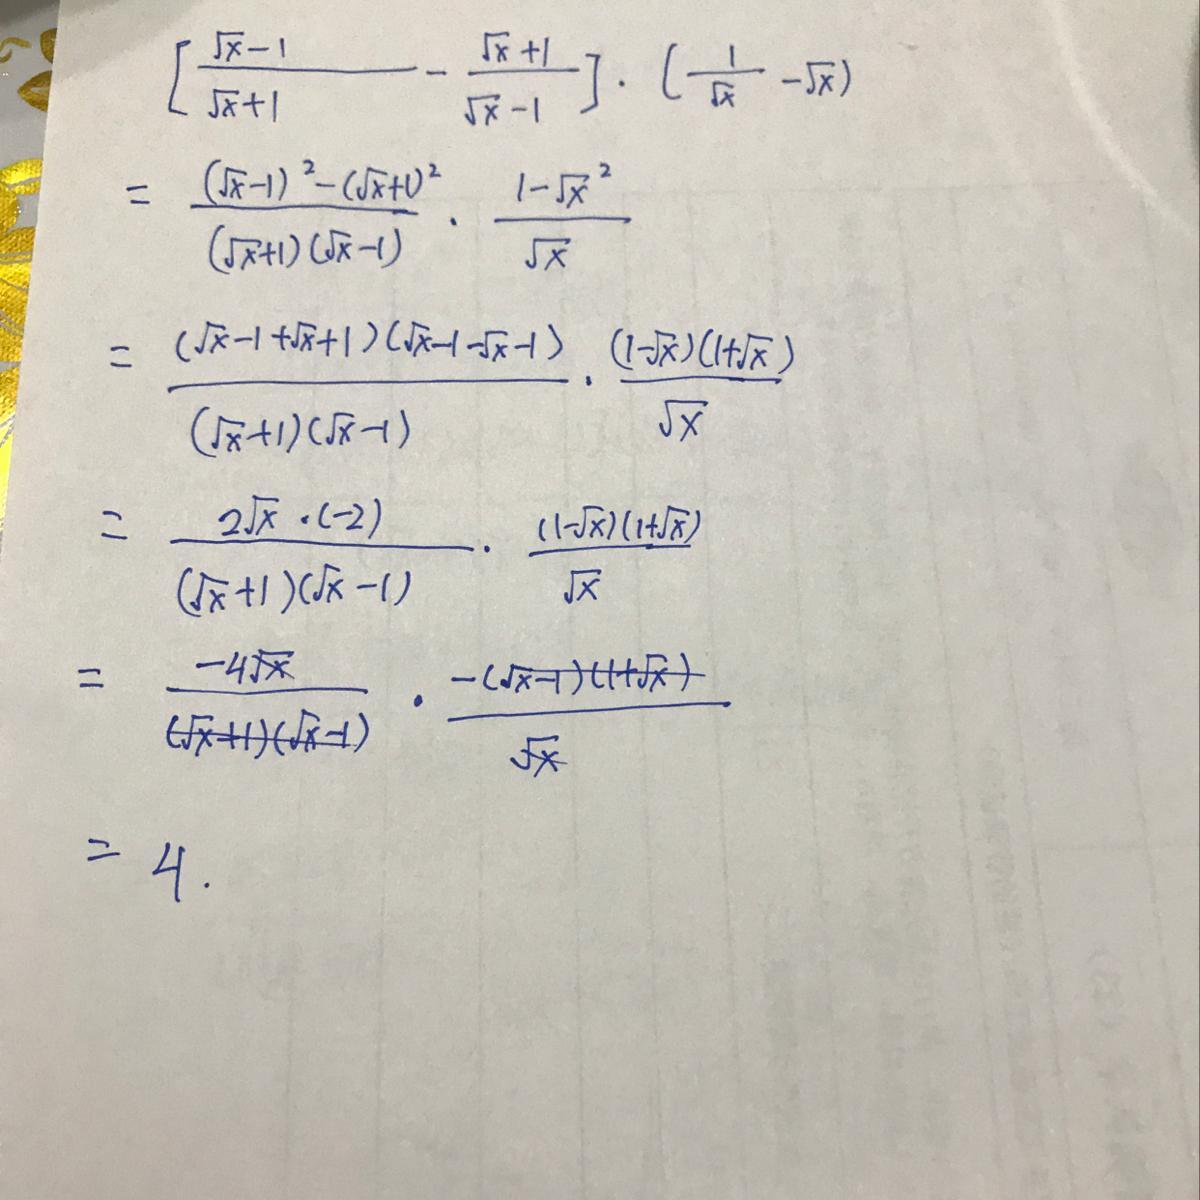 [(√x-1)/(√x+1) - (√x+1)/(√x-1)]·(1/√x -√x)
= ((√x-1)²-(√x+1)²)/((√x+1)(√x-1)) · (1-√x²)/√x
= ((√x-1+√x+1)(√x-1-√x-1))/((√x+1)(√x-1)) · ((1-√x)(1+√x))/√x
= (2√x·(-2))/((√x+1)(√x-1)) · ((1-√x)(1+√x))/√x
= (-4√x)/((√x+1)(√x-1)) · (-(√x-1)(1+√x))/√x
= 4.